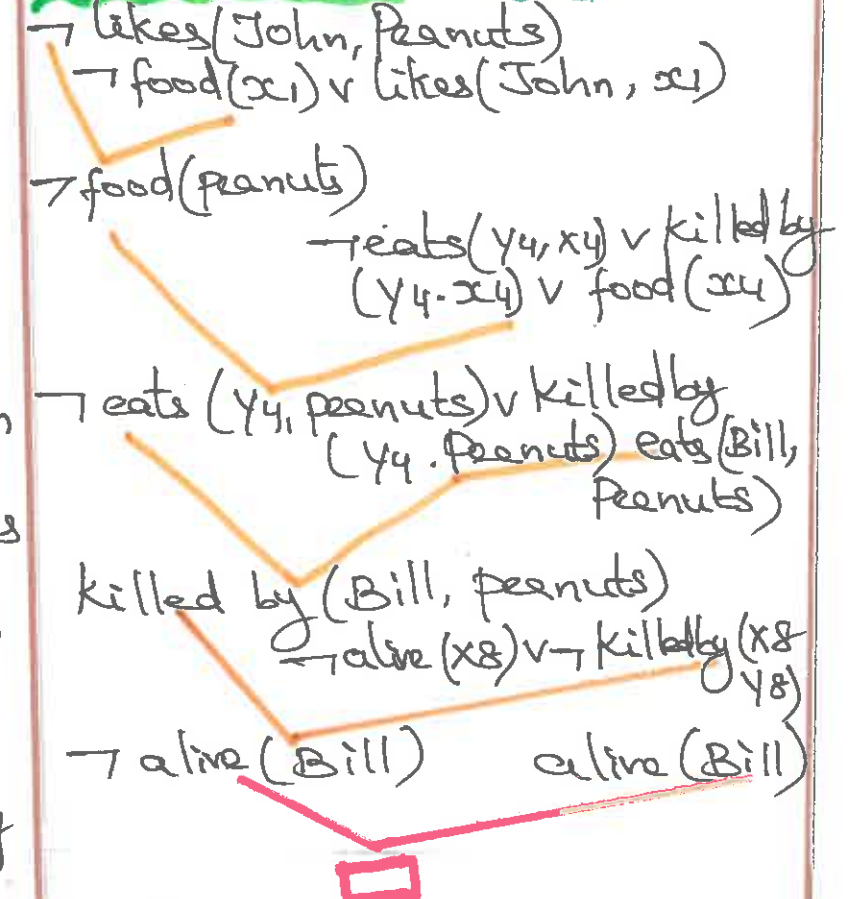 ¬ likes(John, Peanuts)
¬ food(x1) v likes(John, x1)
¬ food(peanuts)
¬ eats(Y4, X4) v killed by
(Y4. x4) v food(x4)
¬ eats (Y4, peanuts) v killed by
(Y4. Peanuts) eats(Bill,
Peanuts)
killed by (Bill, peanuts)
¬ alive (X8) v ¬ killed by (X8
Y8)
¬ alive (Bill) alive (Bill)